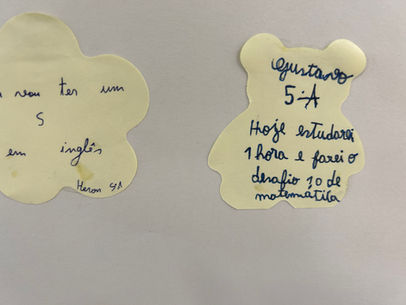 vou ter um
5
em inglês
Heron 5A
Gustavo
5-A
Hoje estudarei
1 hora e farei o
desafio 10 de
matemática